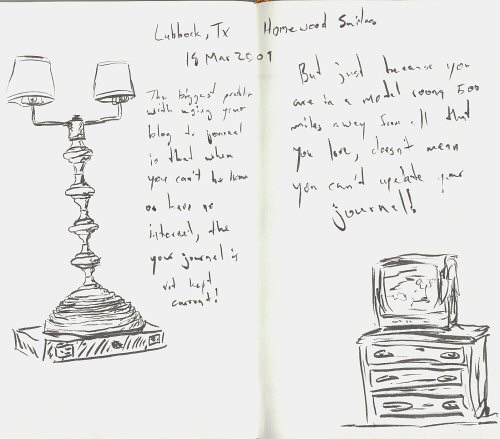 Lubbock, Tx Homewood Suites
18 Mar 2009
The biggest problem
with using your
blog to journal
is that when
you can't be home
or have no
internet, the
your journal is
not kept
current!
But just because you
are in a motel room 500
miles away from all that
you love, doesn't mean
you can't update your
journal!